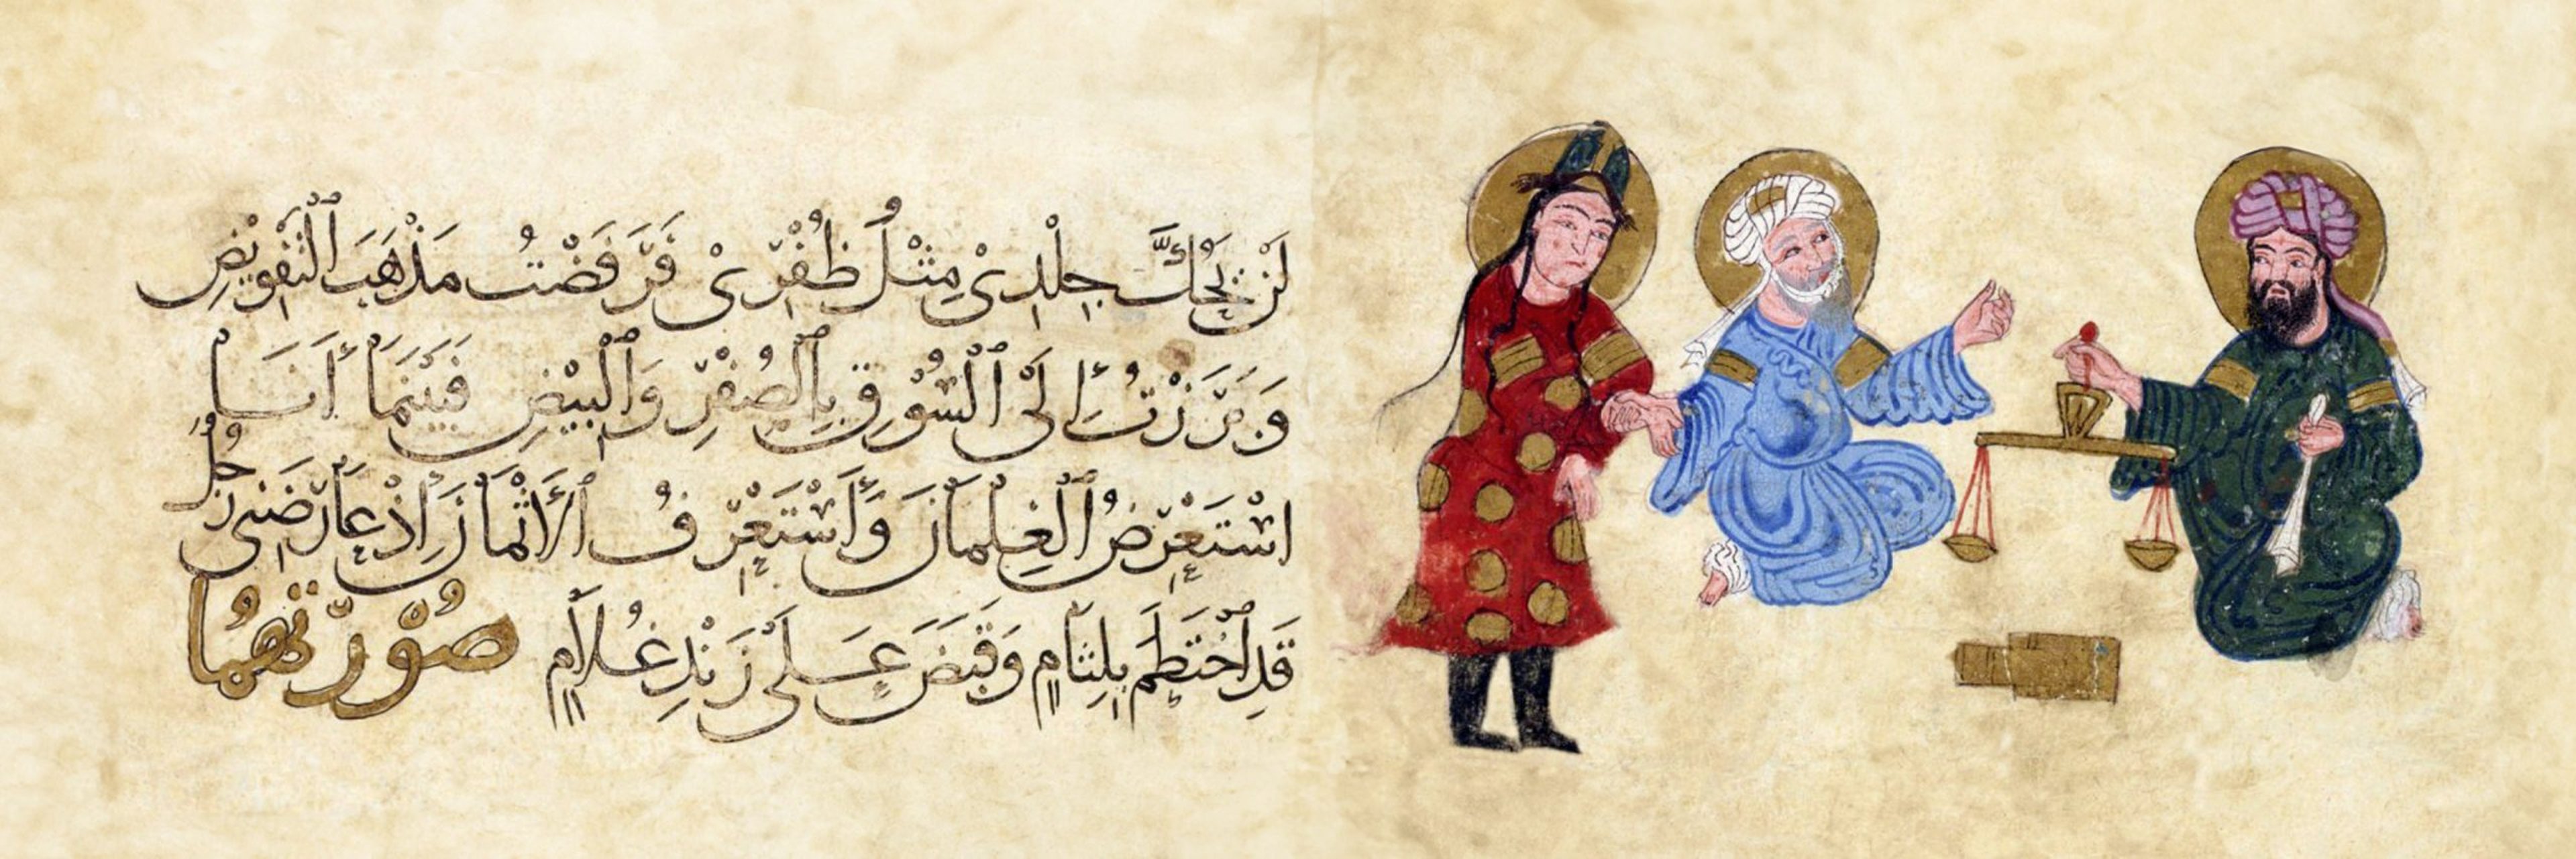 لَنْ يَحُكَّ جِلْدِيْ مِثْلُ ظُفْرِيْ فَرَفَضْتُ مَذْهَبَ التَّفْوِيْضِ
وَبَرَزْتُ إِلَى ٱلسُّوْقِ بِٱلصُّفْرِ وَٱلْبِيْضِ فَبَيْنَمَا أَنَا
اسْتَعْرِضُ ٱلْغِلْمَانَ وَأَسْتَعْرِفُ ٱلْأَثْمَانَ إِذْ عَارَضَنِيْ رَجُلٌ
قَدِ ٱخْتَطَمَ بِلِثَامٍ وَقَبَضَ عَلَى زَنْدِ غُلَامٍ صُوْرَتهُمَا